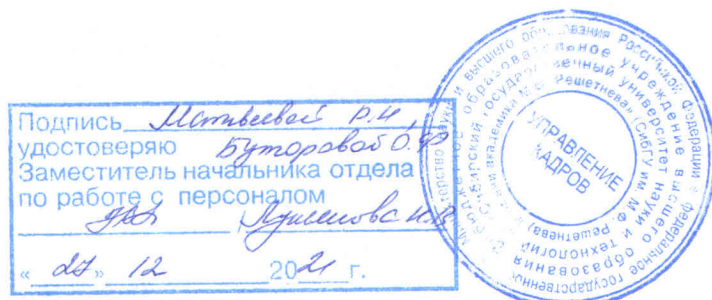 Подпись Матвеевой Р.И.,
удостоверяю Буторовой О.Ф.
Заместитель начальника отдела
по работе с персоналом
« 27 » 12 2021 г.
Министерство науки и высшего образования Российской Федерации * федеральное государственное
бюджетное образовательное учреждение высшего образования
«Сибирский государственный университет науки и технологий
имени академика М.Ф. Решетнева» (СибГУ им. М.Ф. Решетнева)
УПРАВЛЕНИЕ
КАДРОВ